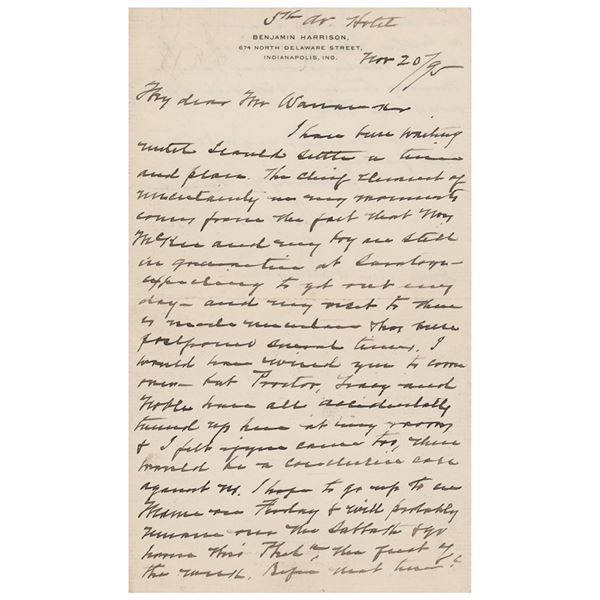 5th Av. Hotel
BENJAMIN HARRISON,
674 NORTH DELAWARE STREET,
INDIANAPOLIS, IND.
Nov 20/95
My dear Mr Wanamaker
I have been waiting
until I could settle a time
and place. The chief element of
uncertainty in my movements
comes from the fact that Mrs
McKee and my boy are still
in quarantine at Saratoga -
expecting to get out any
day - and my visit to them
is made uncertain & has been
postponed several times. I
would have wired you to come
over - but Proctor, Tracy and
Noble have all accidentally
turned up here at my rooms
& I felt if you came too, there
would be a conclusive case
against us. I hope to go up to see
Mame on Friday & will probably
remain over the Sabbath & go
home thro Phila, the first of
the week. Before that time